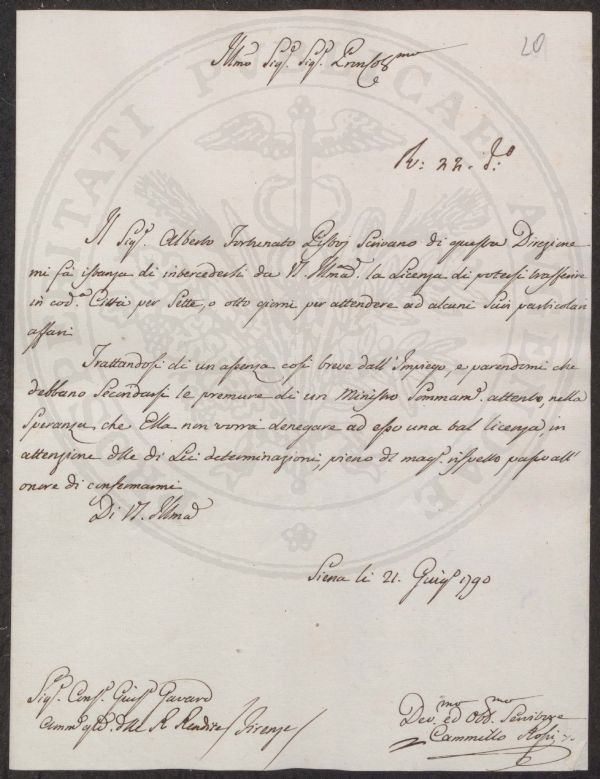 20
Illmo Sig.e Sig.e Pron Col.mo
R: 22. d.o
Il Sig.e Alberto Fortunato Pistoj Scrivano di questa Direzione
mi fà istanza di intercederli da V.S. Illma la Licenza di potersi trasferire
in cod.a Città per Sette, o otto giorni per attendere ad alcuni Suoi particolari
affari
Trattandosi di un assenza così breve dall'Impiego, e parendomi che
debbano Secondarsi le premure di un Ministro Sommam.e attento, nella
Speranza che Ella non vorrà denegare ad esso una tal licenza, in
attenzione delle di Lei determinazioni, pieno del magg.e rispetto passo all'
onore di confermarmi
Di V.S. Illma
Siena li 21. Giug.o 1790
Sig.e Cons.e Gius.e Gavard
Amm.e gle delle R Rendite / Firenze /
Dev.mo ed Obb.mo Servitore
Cammillo Rossi
PROSPERITATI PUBLICAE AUGENDAE